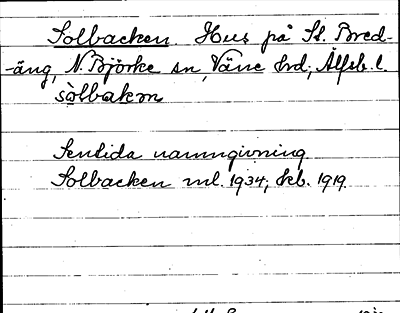 Solbacken. Hus på St. Bred-
-äng, N. Björke sn, Väne hd, Älfsb. l.
sòlbakɷn
Sentida namngivning.
Solbacken ml. 1934, kb. 1919.